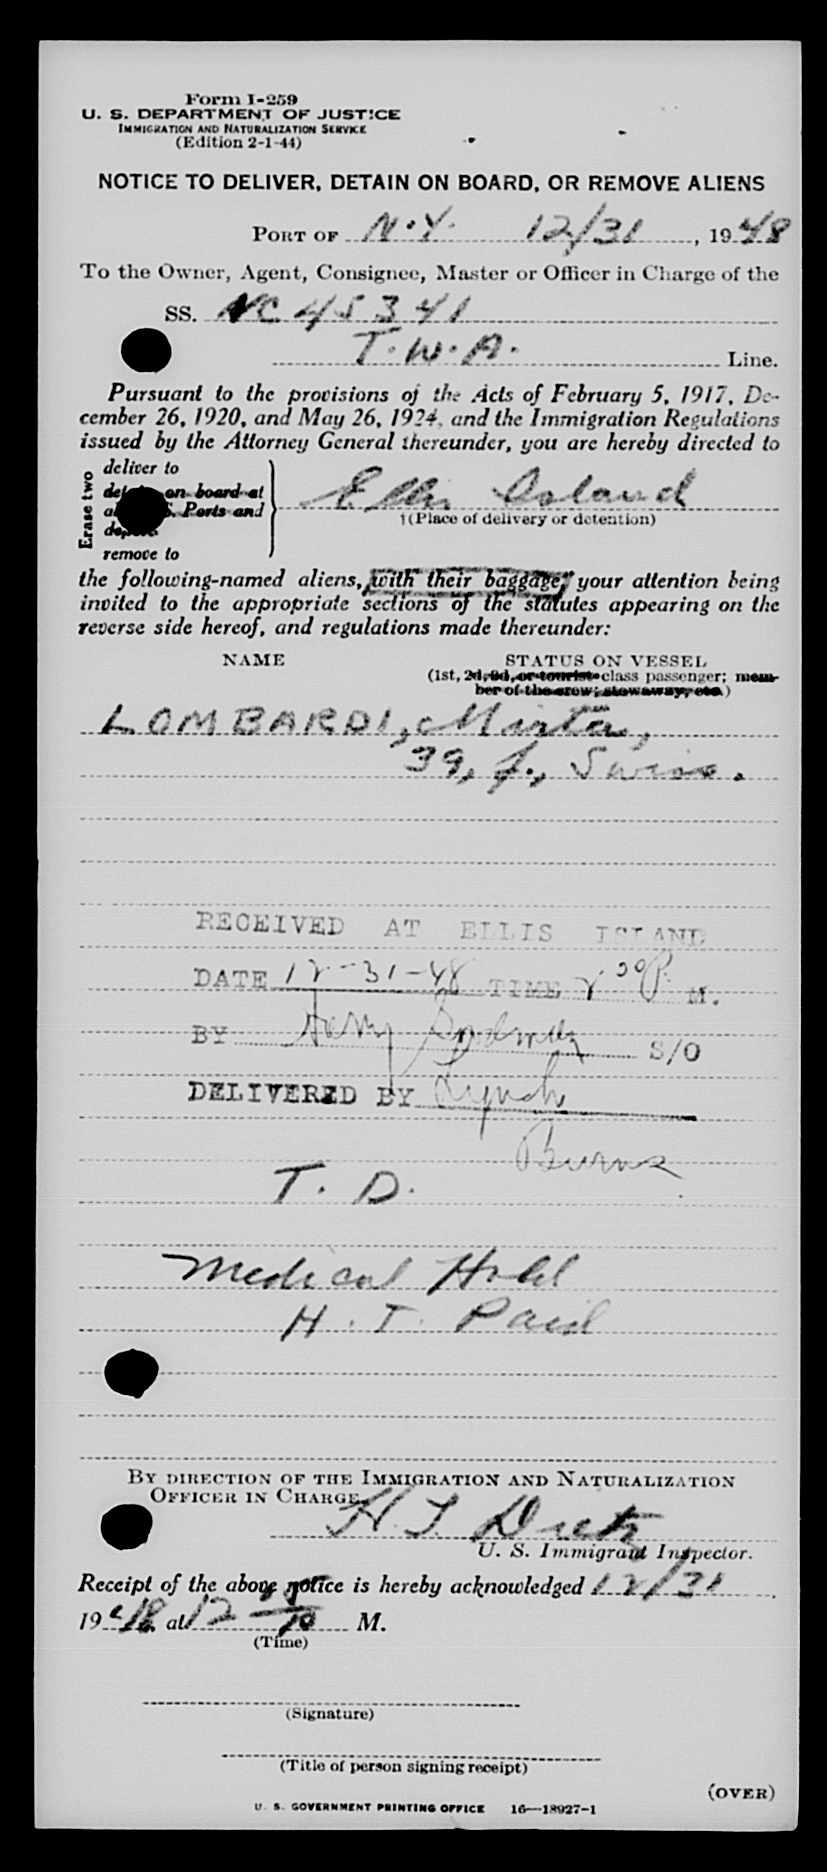 Form I-259
U. S. DEPARTMENT OF JUSTICE
IMMIGRATION AND NATURALIZATION SERVICE
(Edition 2-1-44)
NOTICE TO DELIVER, DETAIN ON BOARD, OR REMOVE ALIENS
PORT OF N.Y. 12/31, 1948
To the Owner, Agent, Consignee, Master or Officer in Charge of the
SS. NC 45341
T.W.A. Line.
Pursuant to the provisions of the Acts of February 5, 1917, De-
cember 26, 1920, and May 26, 1924, and the Immigration Regulations
issued by the Attorney General thereunder, you are hereby directed to
Erase two
deliver to
on board at
Ports and
remove to
Ellis Island
†(Place of delivery or detention)
the following-named aliens, with their baggage, your attention being
invited to the appropriate sections of the statutes appearing on the
reverse side hereof, and regulations made thereunder:
NAME STATUS ON VESSEL
(1st, 2d, 3d, or tourist class passenger; mem-
ber of the crew; stowaway, etc.)
LOMBARDI, Mirta,
39, f., Swiss.
RECEIVED AT ELLIS ISLAND
DATE 12-31-48 TIME 2 30 P. M.
BY Harry S/O
DELIVERED BY Lynch
Burns
T. D.
Medical Hold
H. T. Paid
BY DIRECTION OF THE IMMIGRATION AND NATURALIZATION
OFFICER IN CHARGE
H. T. Dietz
U. S. Immigrant Inspector.
Receipt of the above notice is hereby acknowledged 12/31
1948 at 12 M.
(Time)
(Signature)
(Title of person signing receipt)
(OVER)
U. S. GOVERNMENT PRINTING OFFICE 16—18927-1